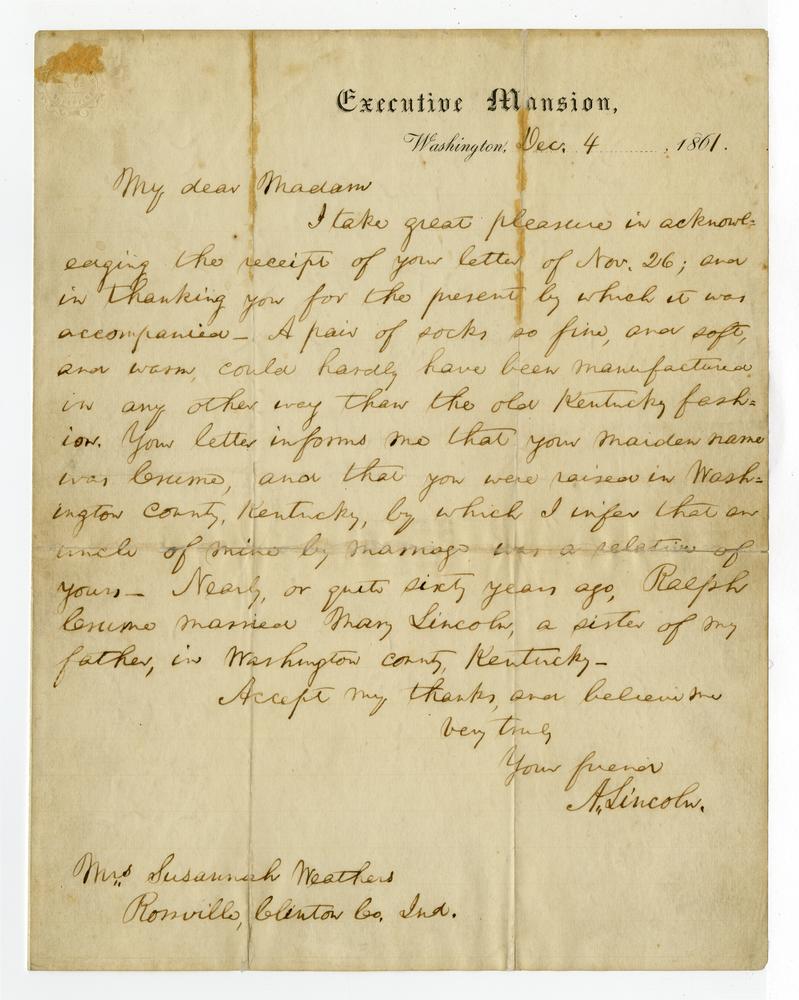 Executive Mansion,
Washington, Dec. 4, 1861.
My dear Madam
I take great pleasure in acknowl=
edging the receipt of your letter of Nov. 26; and
in thanking you for the present by which it was
accompanied— A pair of socks so fine, and soft,
and warm, could hardly have been manufactured
in any other way than the old Kentucky fash=
ion. Your letter informs me that your maiden name
was Crume, and that you were raised in Wash=
ington county, Kentucky, by which I infer that an
uncle of mine by marriage was a relative of
yours— Nearly, or quite sixty years ago, Ralph
Crume married Mary Lincoln, a sister of my
father, in Washington county, Kentucky—
Accept my thanks, and believe me
very truly
Your friend
A. Lincoln.
Mrs Susannah Weathers
Rossville, Clinton Co. Ind.